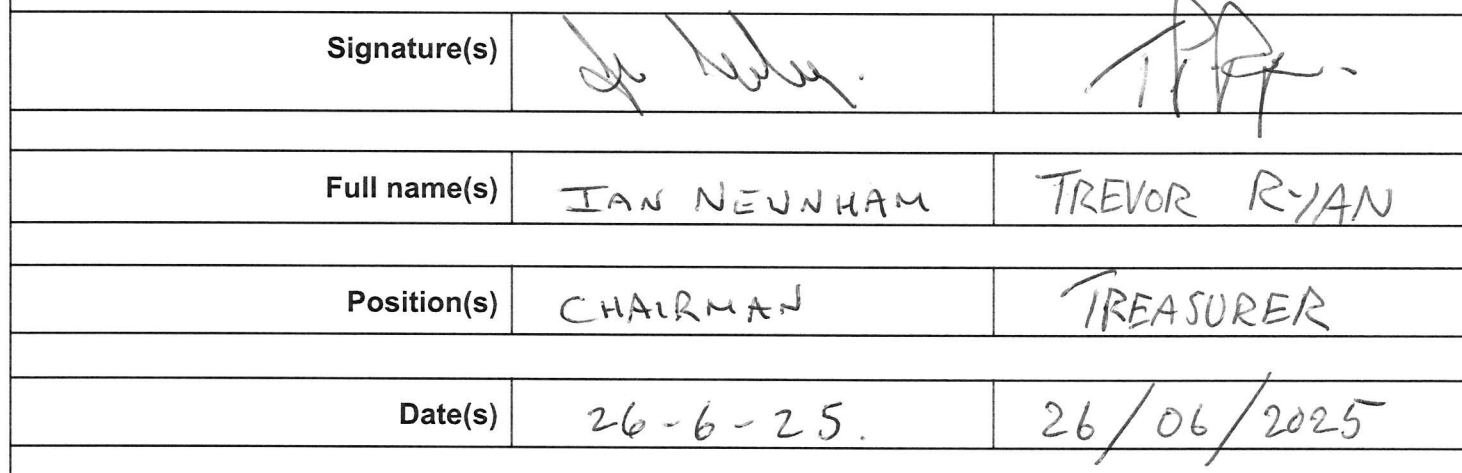 Signature(s)
Full name(s) IAN NEWNHAM TREVOR RYAN
Position(s) CHAIRMAN TREASURER
Date(s) 26-6-25. 26/06/2025